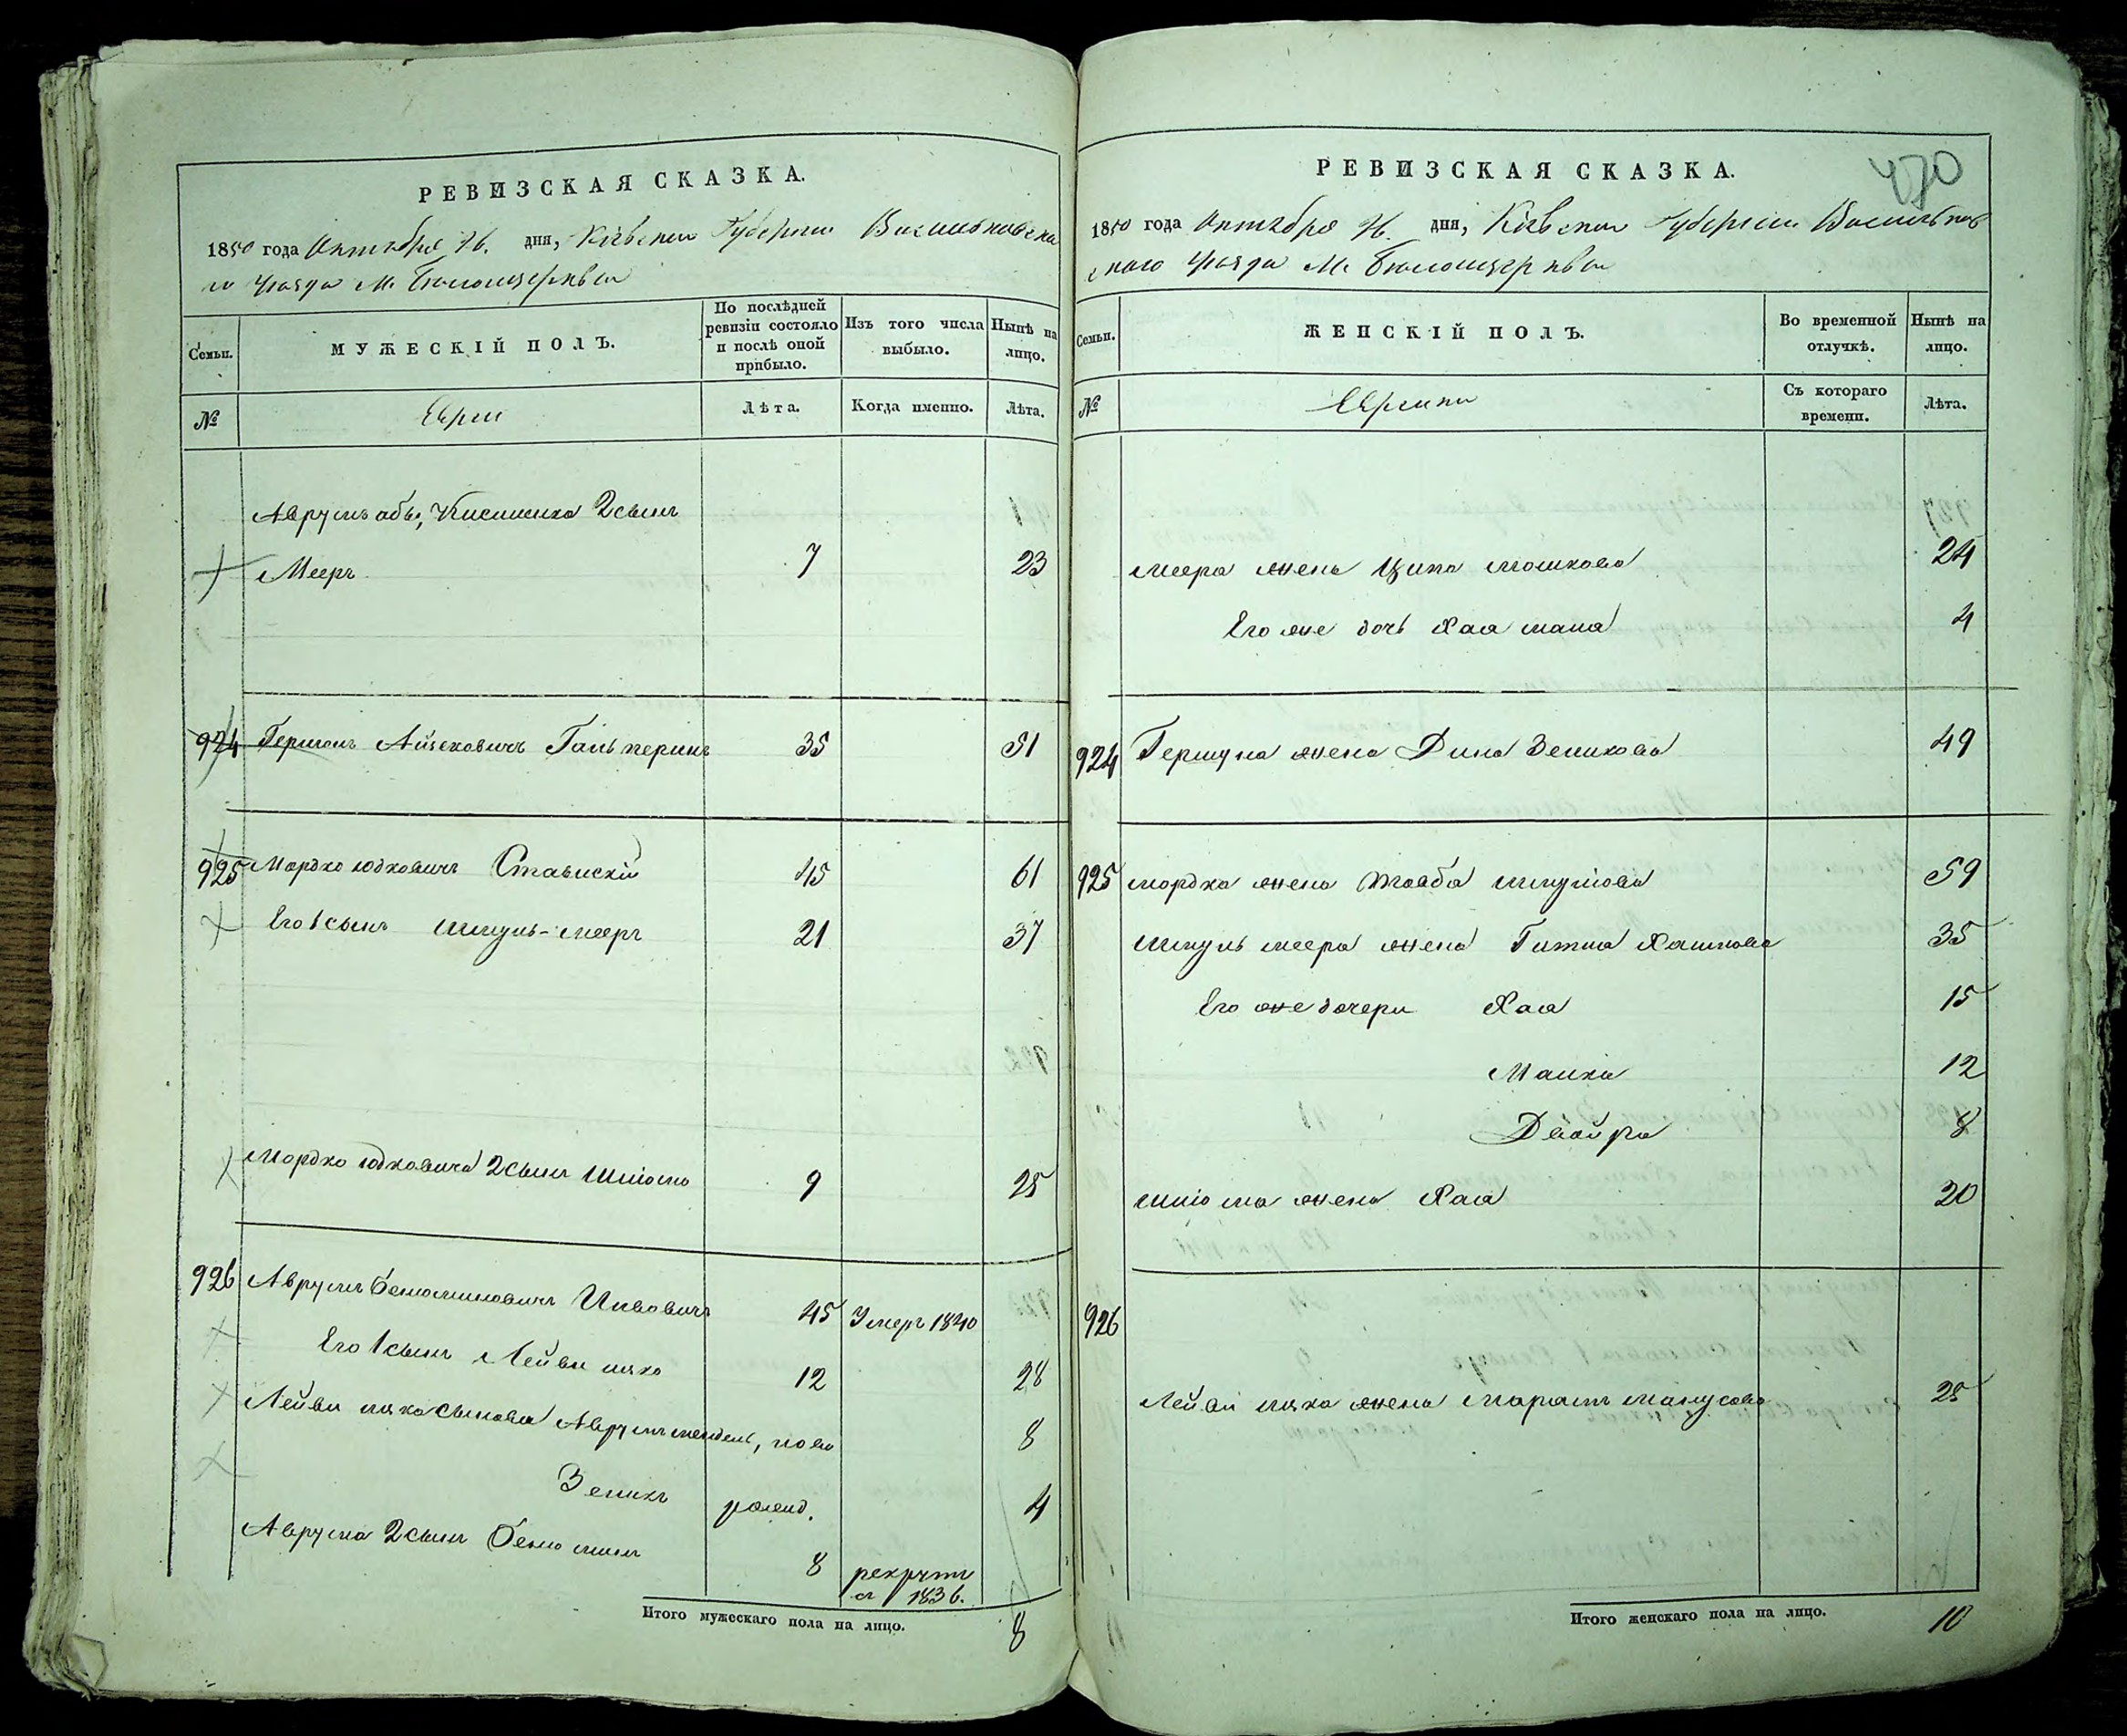 РЕВИЗСКАЯ СКАЗКА.
1850 года Октября 26. дня, Кіевской Губерніи Васильковска
го уѣзда М. Бѣлоцеркви
Семьи.
МУЖЕСКІЙ ПОЛЪ.
По послѣдней ревизіи состояло и послѣ оной прибыло.
Изъ того числа выбыло.
Нынѣ на лицо.
№
Евреи
Лѣта.
Когда именно.
Лѣта.
Аврумъ абы, 2 сынъ
Мееръ 7 23
924 Гершонъ Айзековичъ Гальперинъ 35 51
925 Мордко Юдковичъ Ставискій 45 61
Его 1 сынъ Шмуль-Мееръ 21 37
Мордко Юдковича 2 сынъ Шліома 9 25
926 Аврумъ Беньоминовичъ 45 Умеръ 1840
Его 1 сынъ Лейви 12 28
Лейви сыновья Аврумъ мендель, ново 8
Зеликъ рожд. 4
Аврума 2 сынъ Беньоминъ 8 рекрутъ
съ 1836.
Итого мужескаго пола на лицо. 8
РЕВИЗСКАЯ СКАЗКА.
470
1850 года Октября 26. дня, Кіевской Губерніи Васильков
скаго уѣзда М. Бѣлоцеркви
Семьи.
ЖЕНСКІЙ ПОЛЪ.
Во временной отлучкѣ.
Нынѣ на лицо.
№
Еврейки
Съ котораго времени.
Лѣта.
Меера жена Ципа Мошкова 24
Его же дочь Хая 4
924 Гершуна жена Дина Зеликова 49
925 Мордка жена Тоаба Шмулiова 59
Шмуль Меера жена Гитля Хаимова 35
Его же дочери Хая 15
Малка 12
Двойра 8
Шліома жена Хая 20
926
Лейви жена Марьямъ Манусова 25
Итого женскаго пола на лицо. 10